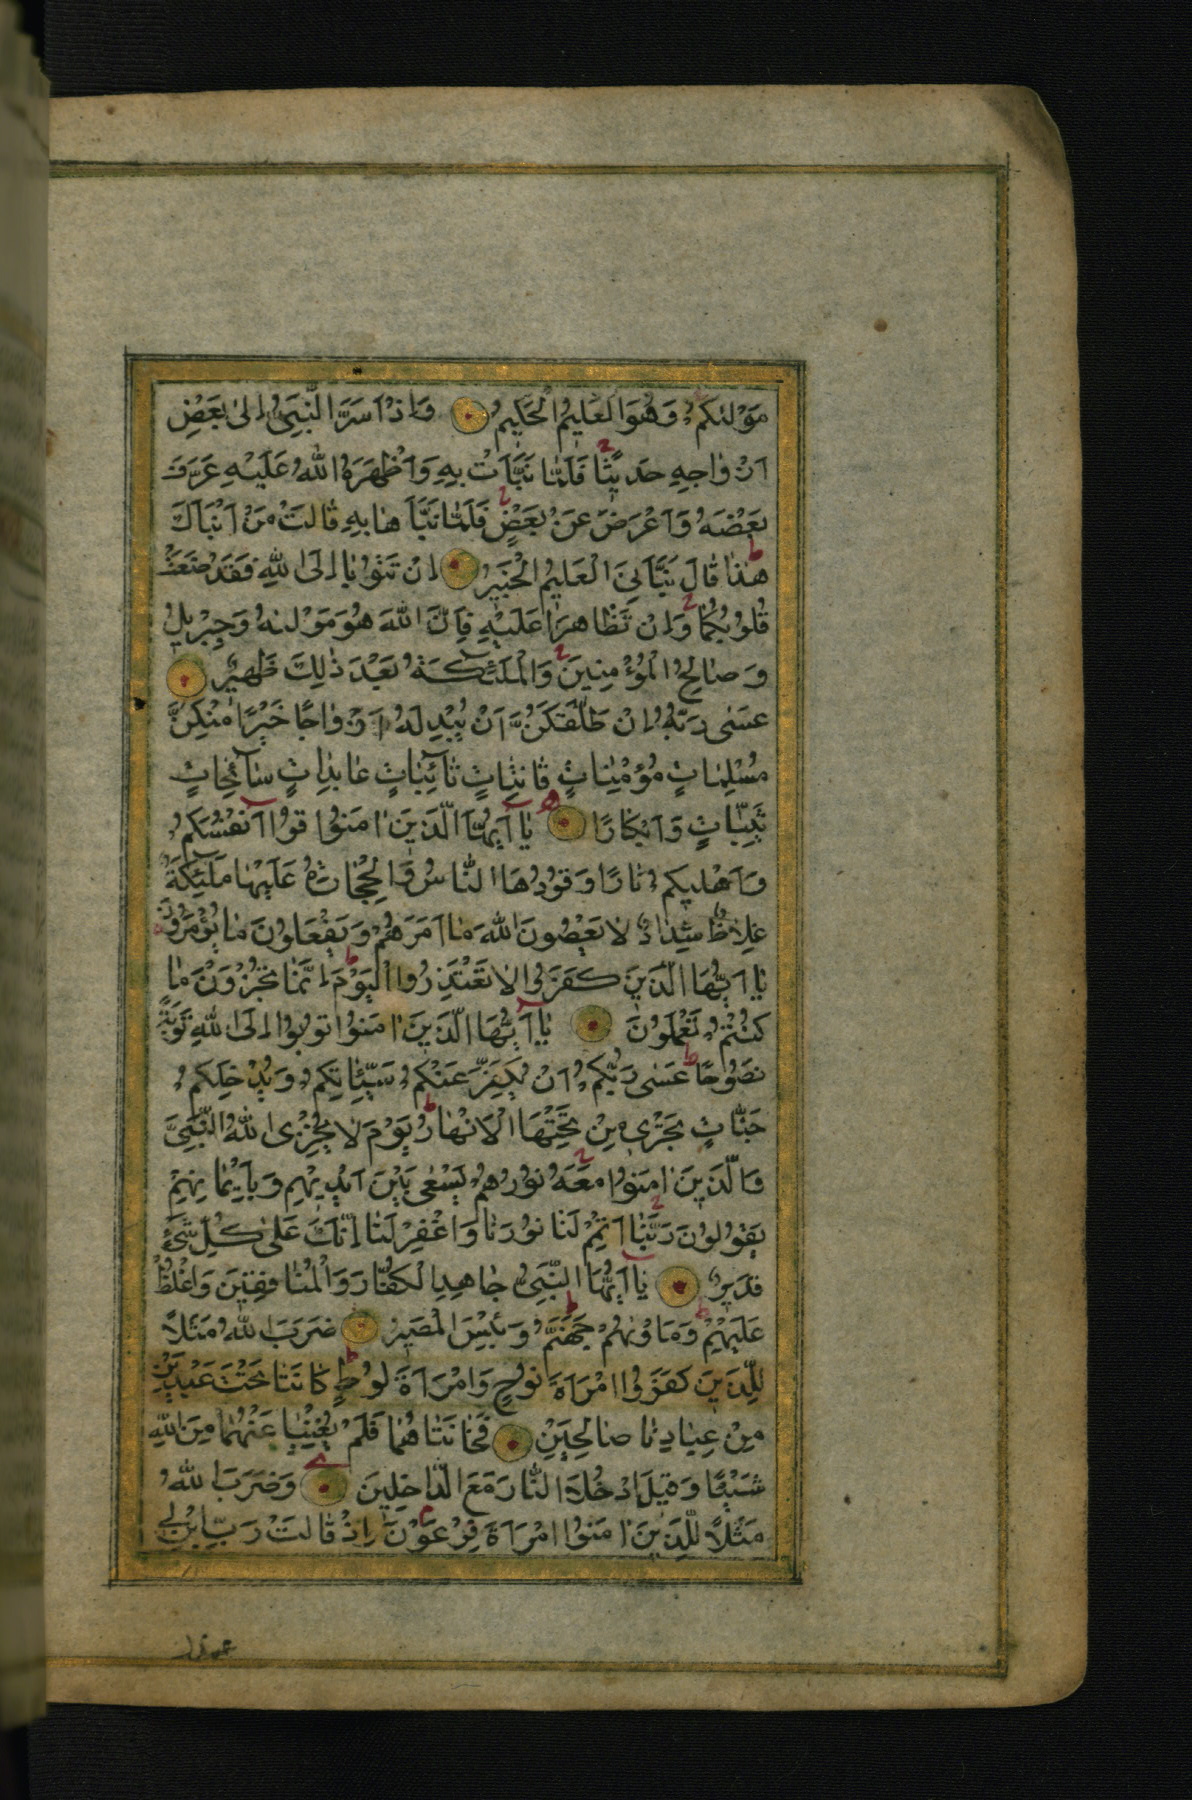 مَوْلٰىكُمْ وَهُوَ الْعَلِيمُ الْحَكِيمُ وَاِذْ اَسَرَّ النَّبِىُّ اِلٰى بَعْضِ
اَزْوٰاجِهِ حَدِيثًا فَلَمّٰا نَبَّأَتْ بِهِ وَاَظْهَرَهُ اللّٰهُ عَلَيْهِ عَرَّفَ
بَعْضَهُ وَاَعْرَضَ عَنْ بَعْضٍ فَلَمّٰا نَبَّأَهٰا بِهِ قٰالَتْ مَنْ اَنْبَأَكَ
هٰذٰا قٰالَ نَبَّأَنِىَ الْعَلِيمُ الْخَبِيرُ اِنْ تَتُوبٰا اِلَى اللّٰهِ فَقَدْ صَغَتْ
قُلُوبُكُمٰا وَاِنْ تَظٰاهَرٰا عَلَيْهِ فَاِنَّ اللّٰهَ هُوَ مَوْلٰيهُ وَجِبْرِيلُ
وَصٰالِحُ الْمُؤْمِنِينَ وَالْمَلٰئِكَةُ بَعْدَ ذٰلِكَ ظَهِيرٌ
عَسٰى رَبُّهُ اِنْ طَلَّقَكُنَّ اَنْ يُبْدِلَهُ اَزْوٰاجًا خَيْرًا مِنْكُنَّ
مُسْلِمٰاتٍ مُؤْمِنٰاتٍ قٰانِتٰاتٍ تٰائِبٰاتٍ عٰابِدٰاتٍ سٰائِحٰاتٍ
ثَيِّبٰاتٍ وَاَبْكٰارًا يٰا اَيُّهَا الَّذِينَ اٰمَنُوا قُوا اَنْفُسَكُمْ
وَاَهْلِيكُمْ نٰارًا وَقُودُهَا النّٰاسُ وَالْحِجٰارَةُ عَلَيْهٰا مَلٰئِكَةٌ
غِلٰاظٌ شِدٰادٌ لٰا يَعْصُونَ اللّٰهَ مٰا اَمَرَهُمْ وَيَفْعَلُونَ مٰا يُؤْمَرُونَ
يٰا اَيُّهَا الَّذِينَ كَفَرُوا لٰا تَعْتَذِرُوا الْيَوْمَ اِنَّمٰا تُجْزَوْنَ مٰا
كُنْتُمْ تَعْمَلُونَ يٰا اَيُّهَا الَّذِينَ اٰمَنُوا تُوبُوا اِلَى اللّٰهِ تَوْبَةً
نَصُوحًا عَسٰى رَبُّكُمْ اَنْ يُكَفِّرَ عَنْكُمْ سَيِّئٰاتِكُمْ وَيُدْخِلَكُمْ
جَنّٰاتٍ تَجْرِى مِنْ تَحْتِهَا الْاَنْهٰارُ يَوْمَ لٰا يُخْزِى اللّٰهُ النَّبِىَّ
وَالَّذِينَ اٰمَنُوا مَعَهُ نُورُهُمْ يَسْعٰى بَيْنَ اَيْدِيهِمْ وَبِاَيْمٰانِهِمْ
يَقُولُونَ رَبَّنٰا اَتْمِمْ لَنٰا نُورَنٰا وَاغْفِرْ لَنٰا اِنَّكَ عَلٰى كُلِّ شَىْءٍ
قَدِيرٌ يٰا اَيُّهَا النَّبِىُّ جٰاهِدِ الْكُفّٰارَ وَالْمُنٰافِقِينَ وَاغْلُظْ
عَلَيْهِمْ وَمَأْوٰيهُمْ جَهَنَّمُ وَبِئْسَ الْمَصِيرُ ضَرَبَ اللّٰهُ مَثَلًا
لِلَّذِينَ كَفَرُوا امْرَأَةَ نُوحٍ وَامْرَأَةَ لُوطٍ كٰانَتٰا تَحْتَ عَبْدَيْنِ
مِنْ عِبٰادِنٰا صٰالِحَيْنِ فَخٰانَتٰاهُمٰا فَلَمْ يُغْنِيٰا عَنْهُمٰا مِنَ اللّٰهِ
شَيْئًا وَقِيلَ ادْخُلَا النّٰارَ مَعَ الدّٰاخِلِينَ وَضَرَبَ اللّٰهُ
مَثَلًا لِلَّذِينَ اٰمَنُوا امْرَأَةَ فِرْعَوْنَ اِذْ قٰالَتْ رَبِّ ابْنِ لِى